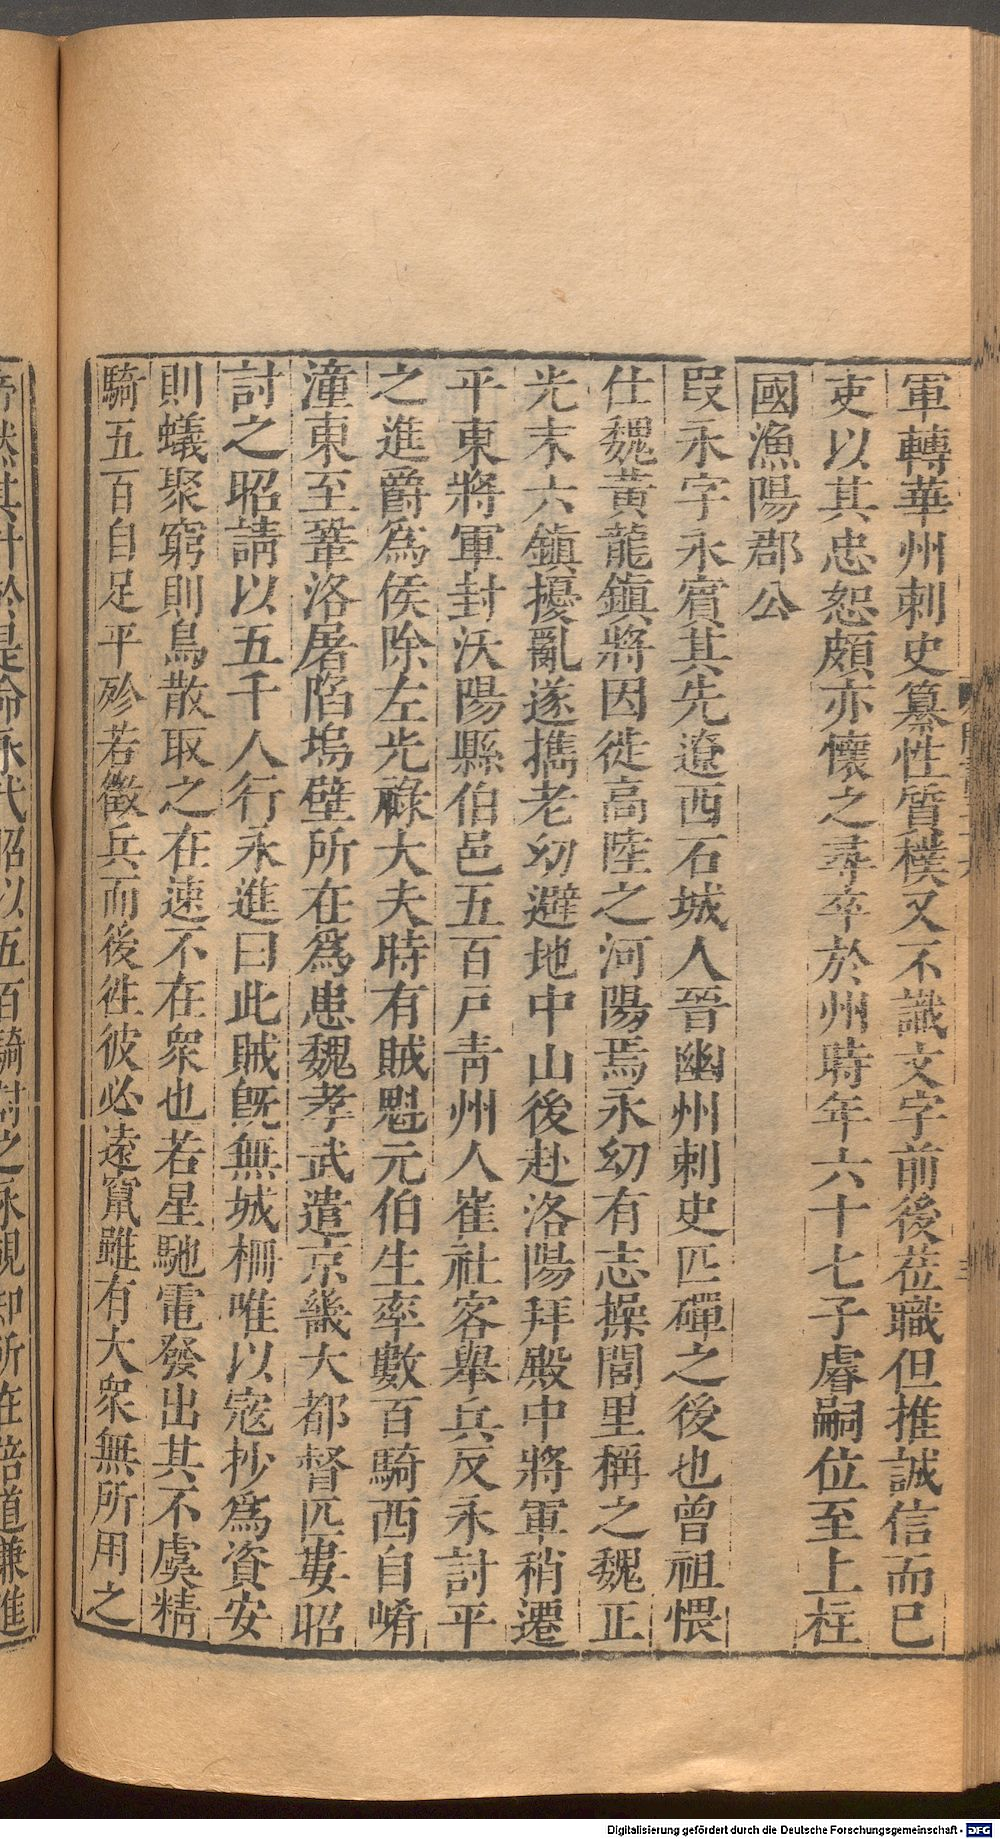 軍轉華州刺史纂性質樸又不識文字前後莅職但推誠信而已
吏以其忠恕頗亦懷之尋卒於州時年六十七子睿嗣位至上柱
國漁陽郡公
段永字永賓其先遼西石城人晉幽州刺史匹磾之後也曾祖愄
仕魏黃龍鎮將因徙高陸之河陽焉永幼有志操閭里稱之魏正
光末六鎮擾亂遂攜老幼避地中山後赴洛陽拜殿中將軍稍遷
平東將軍封沃陽縣伯邑五百戶青州人崔社客舉兵反永討平
之進爵爲侯除左光祿大夫時有賊魁元伯生率數百騎西自崤
潼東至鞏洛屠陷塢壁所在爲患魏孝武遣京畿大都督匹婁昭
討之昭請以五千人行永進曰此賊旣無城柵唯以寇抄爲資安
則蟻聚窮則鳥散取之在速不在衆也若星馳電發出其不虞精
騎五百自足平殄若徵兵而後往彼必遠竄雖有大衆無所用之
帝然其計於是命永代昭以五百騎討之永覘知所在倍道兼進
Digitalisierung gefördert durch die Deutsche Forschungsgemeinschaft - DFG